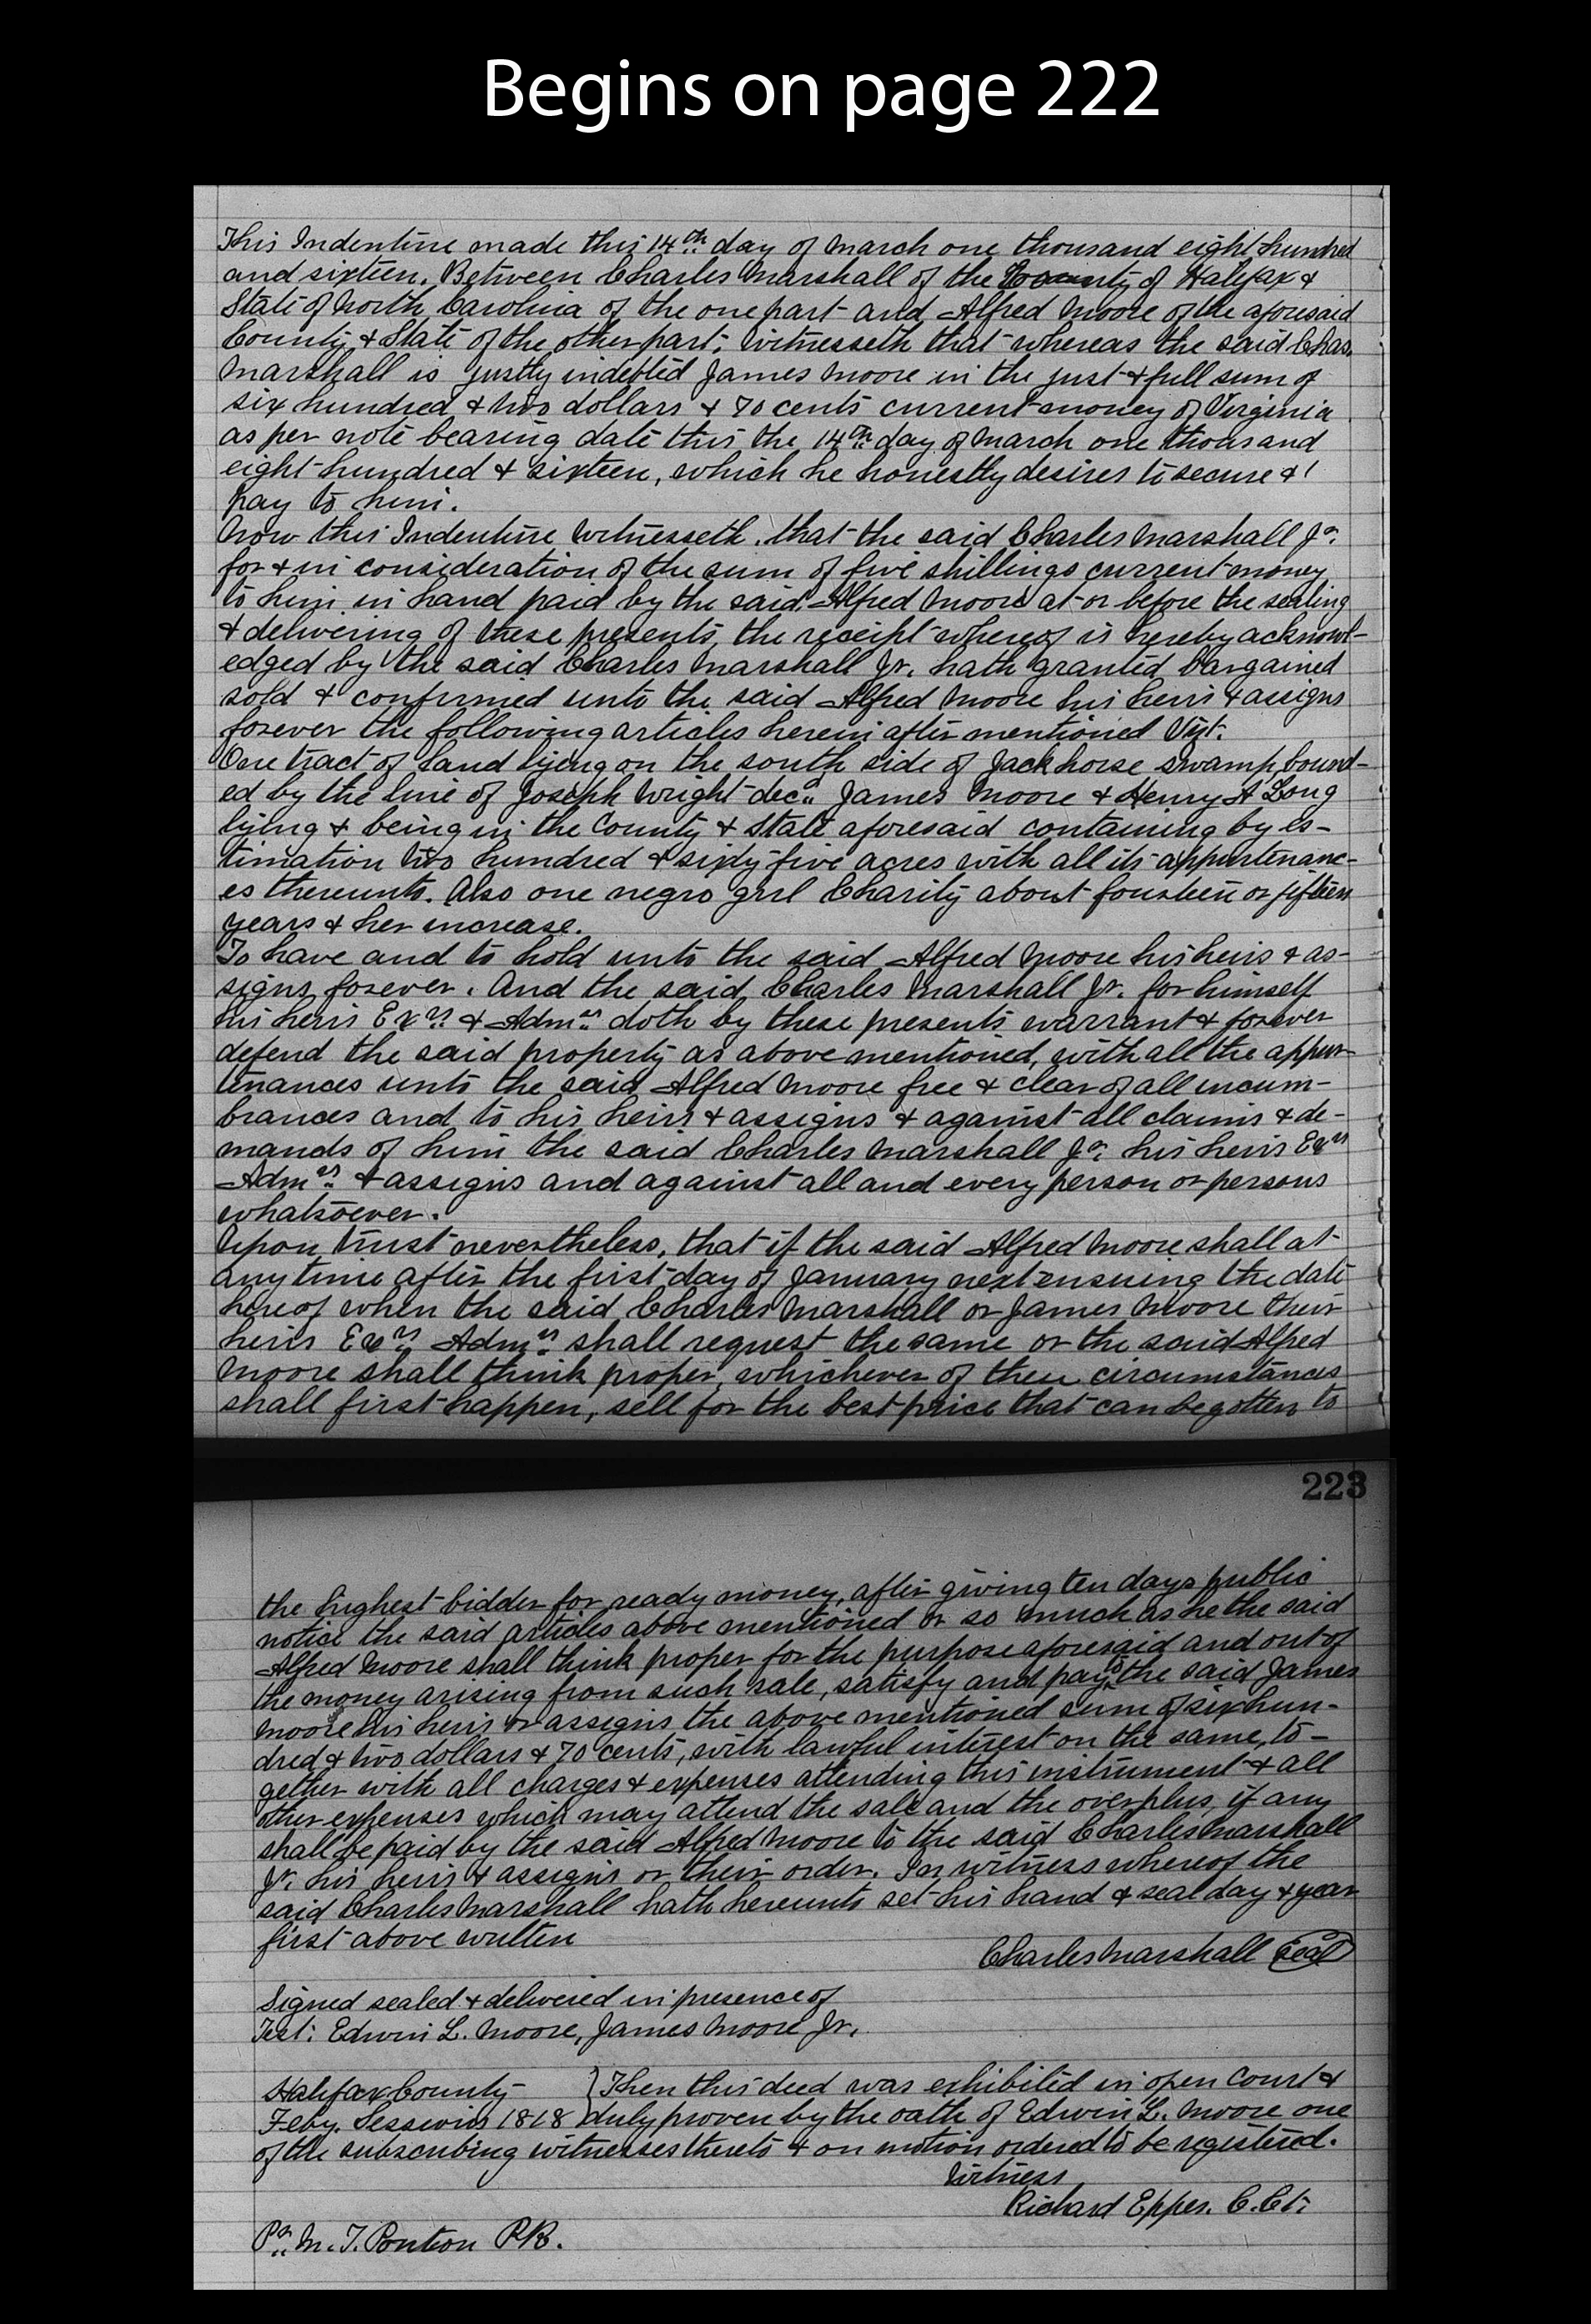 Begins on page 222
This Indenture made this 14th day of March one thousand eight hundred
and sixteen. Between Charles Marshall of the County of Halifax &
State of North Carolina of the one part and Alfred Moore of the aforesaid
County & State of the other part; Witnesseth that whereas the said Chas.
Marshall is justly indebted James Moore in the just & full sum of
six hundred & two dollars & 70 cents current money of Virginia
as per note bearing date this the 14th day of March one thousand
eight hundred & sixteen, which he honestly desires to secure &
pay to him.
Now this Indenture Witnesseth. that the said Charles Marshall Jr.
for & in consideration of the sum of five shillings current money
to him in hand paid by the said Alfred Moore at or before the sealing
& delivering of these presents, the receipt whereof is hereby acknowl-
edged by the said Charles Marshall Jr. hath granted bargained
sold & confirmed unto the said Alfred Moore his heirs & assigns
forever the following articles herein after mentioned Vizt.
One tract of Land lying on the south side of Jack horse swamp bound-
ed by the line of Joseph Wright decd. James Moore & Henry A Long
lying & being in the County & State aforesaid containing by es-
timation two hundred & sixty five acres with all its appurtenanc-
es thereunto. Also one negro girl Charity about fourteen or fifteen
years & her increase.
To have and to hold unto the said Alfred Moore his heirs & as-
signs forever. And the said Charles Marshall Jr. for himself
his heirs Exrs. & Admrs. doth by these presents warrant & forever
defend the said property as above mentioned, with all the appur-
tenances unto the said Alfred Moore free & clear of all incum-
brances and to his heirs & assigns & against all claims & de-
mands of him the said Charles Marshall Jr. his heirs Exrs
Admrs. & assigns and against all and every person or persons
whatsoever.
Upon trust nevertheless, that if the said Alfred Moore shall at
any time after the first day of January next ensuing the date
hereof when the said Charles Marshall or James Moore their
heirs Exrs. Admrs. shall request the same or the said Alfred
Moore shall think proper, whichever of these circumstances
shall first happen, sell for the best price that can be gotten to
223
the highest bidder for ready money, after giving ten days public
notice the said articles above mentioned or so much as he the said
Alfred Moore shall think proper for the purpose aforesaid and out of
the money arising from such sale, satisfy and pay to the said James
Moore his heirs or assigns the above mentioned sum of six hun-
dred & two dollars & 70 cents, with lawful interest on the same, to-
gether with all charges & expenses attending this instrument & all
other expenses which may attend the sale and the overplus, if any
shall be paid by the said Alfred Moore to the said Charles Marshall
Jr. his heirs & assigns or their order. In witness whereof the
said Charles Marshall hath hereunto set his hand & seal day & year
first above written
Charles Marshall Seal
Signed sealed & delivered in presence of
Test: Edwin L. Moore, James Moore Jr.
Halifax County } Then this deed was exhibited in open Court &
Feby. Session 1818 } duly proven by the oath of Edwin L. Moore one
of the subscribing witnesses thereto & on motion ordered to be registered.
Witness
Richard Eppes. C. Ct.
Pr. M. T. Ponton P.R.